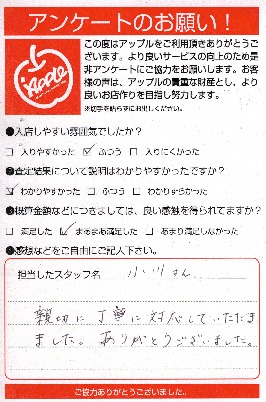 アンケートのお願い！
Apple
この度はアップルをご利用頂きありがとうご
ざいます。より良いサービスの向上のため是
非アンケートにご協力をお願いします。お客
様の声は、アップルの貴重な財産とし、より
良いお店作りを目指し努力します。
※切手を貼らずにお出しください。
❶入店しやすい雰囲気でしたか？
□ 入りやすかった ☑ ふつう □ 入りにくかった
❷査定結果について説明はわかりやすかったですか？
☑ わかりやすかった □ ふつう □ わかりずらかった
❸概算金額などにつきましては、良い感触を得られてますか？
□ 満足した ☑ まあまあ満足した □ あまり満足しなかった
❹感想などをご自由にご記入下さい。
担当したスタッフ名 小川さん
親切に丁寧に対応していただき
ました。ありがとうございました。
ご協力ありがとうございました。